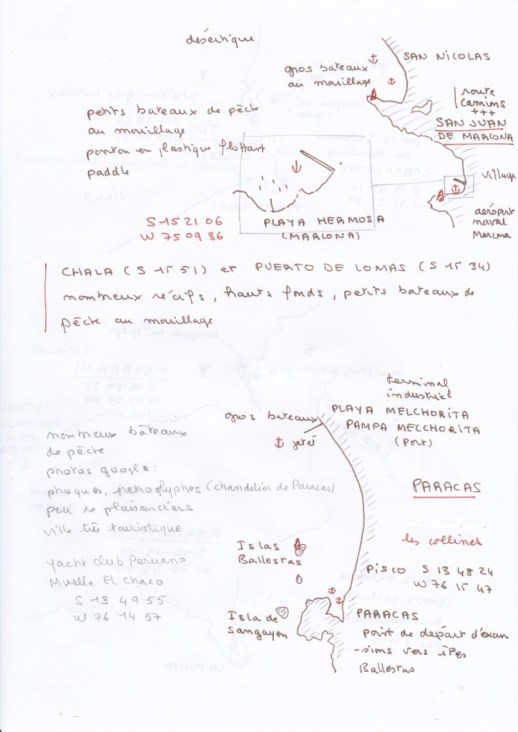 désertique
gros bateaux
au mouillage
SAN NICOLAS
route
camions
+++
SAN JUAN
DE MARCONA
petits bateaux de pêche
au mouillage
ponton en plastique flottant
paddle
village
aéroport
naval
Marcona
PLAYA HERMOSA
(MARCONA)
S 15 21 06
W 75 09 36
CHALA (S 15 51) et PUERTO DE LOMAS (S 15 34)
nombreux récifs, hauts fonds, petits bateaux de
pêche au mouillage
terminal
industriel
gros bateaux
PLAYA MELCHORITA
PAMPA MELCHORITA
(Port)
jetée
nombreux bateaux
de pêche
photos google:
phoques, petroglyphes (chandelier de Paracas)
peu de plaisanciers
ville très touristique
PARACAS
les collines
Islas
Ballestas
PISCO S 13 48 24
W 76 15 47
yacht club Peruano
Muelle EL Chaco
S 13 49 55
W 76 14 57
Isla de
Sangayan
PARACAS
point de départ d'excur
-sions vers îles
Ballestas